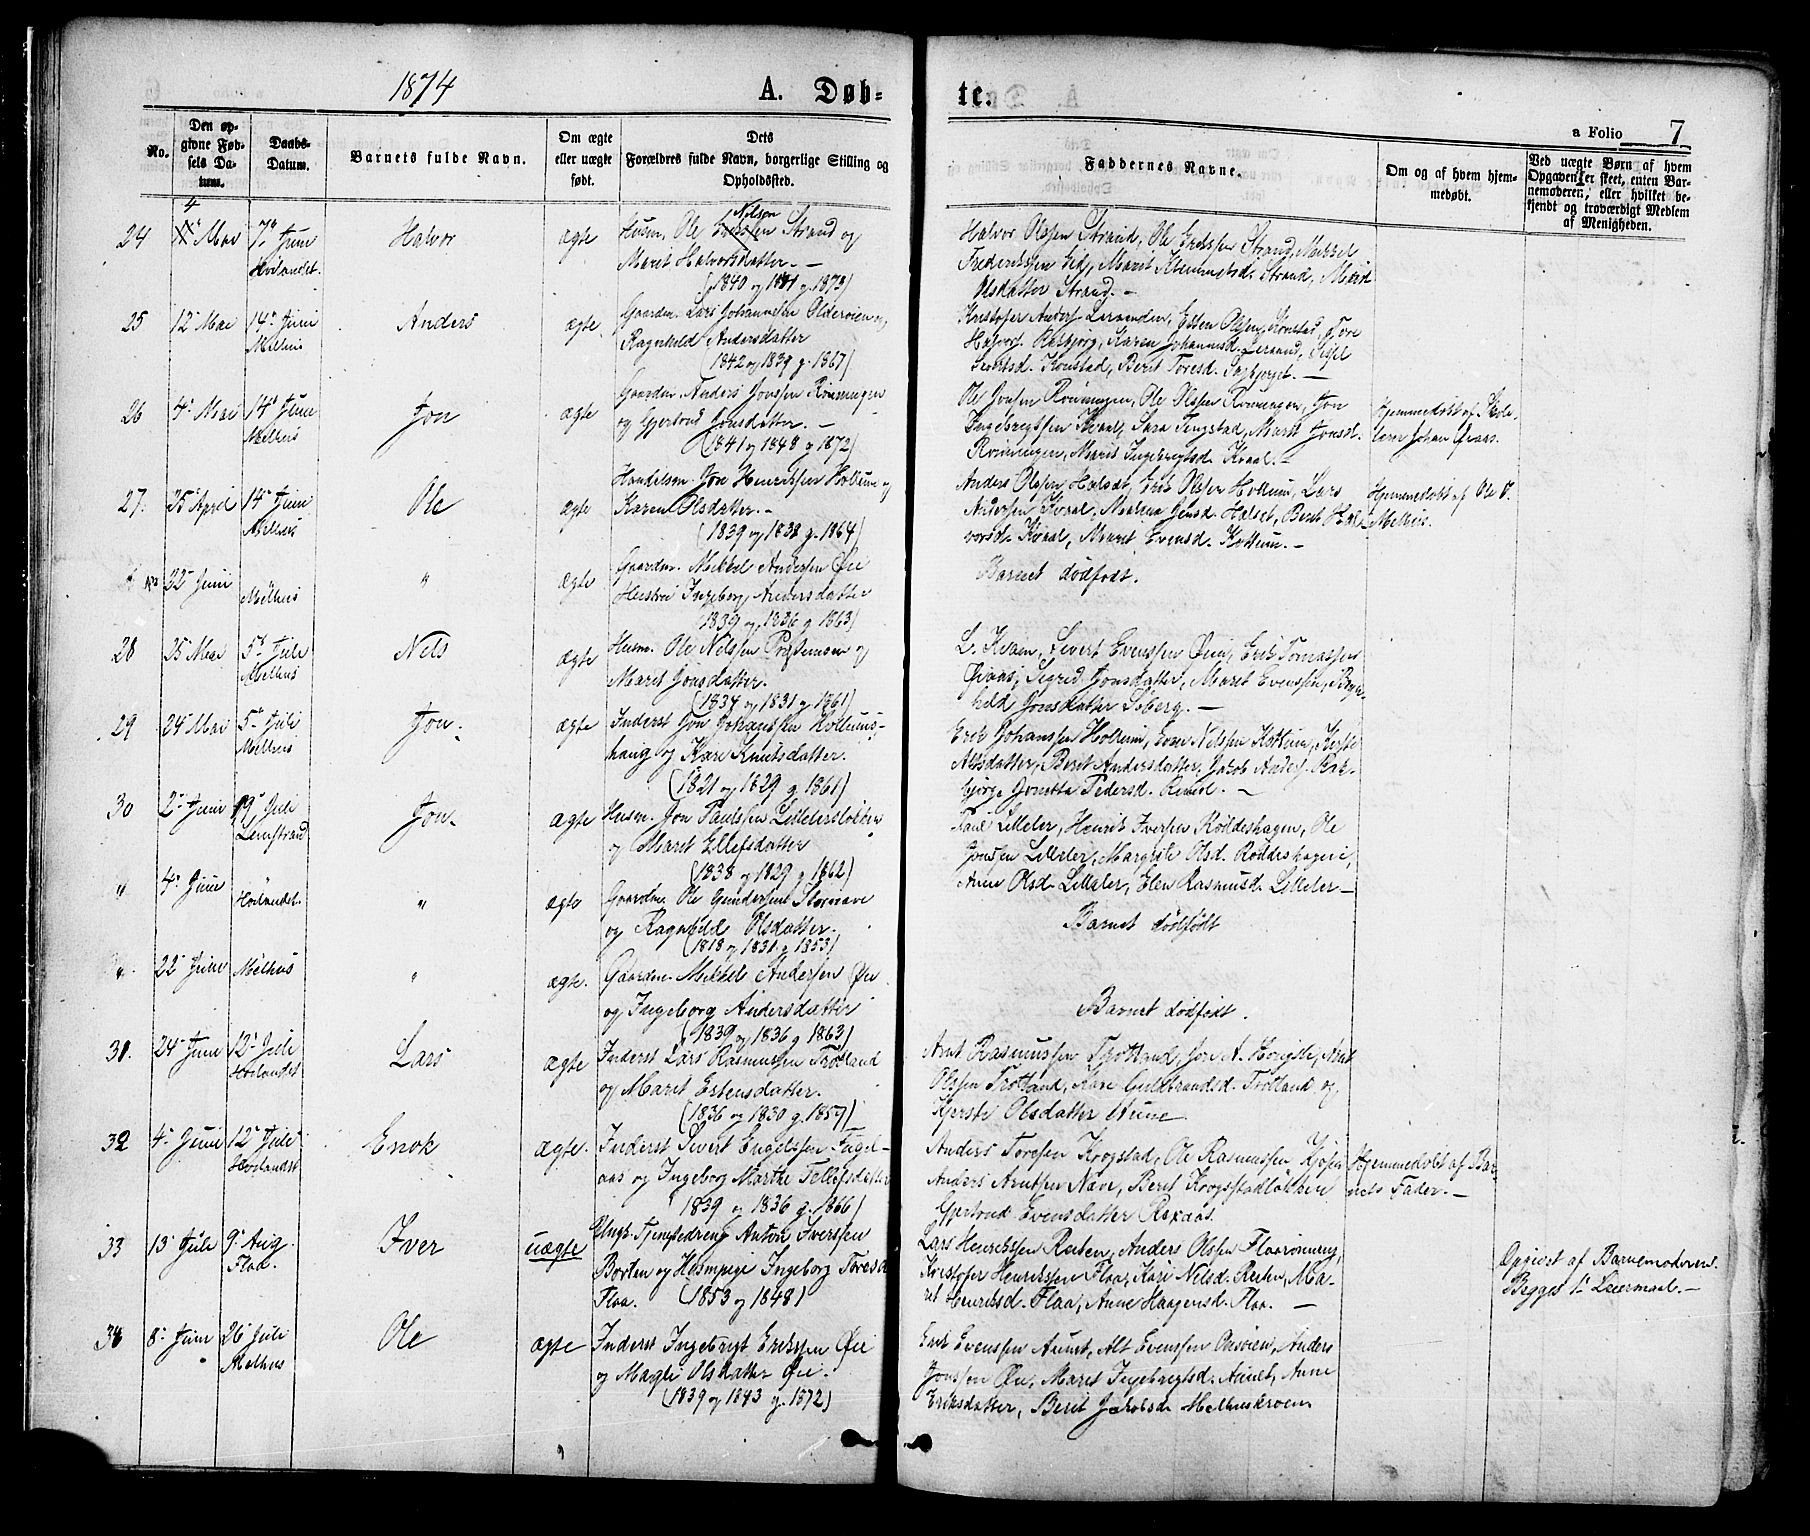 1874
A. Døb-
te.
a Folio 7
No.
Den op-
givne Fød-
sels Da-
tum.
Daabs-
Datum.
Barnets fulde Navn.
Om ægte
eller uægte
født.
Dets
Forældres fulde Navn, borgerlige Stilling og
Opholdssted.
Faddernes Navne.
Om og af hvem hjem-
medøbt.
Ved uægte Børn af hvem
Opgaven er skeet, enten Bar-
nemoderen, eller hvilket be-
kjendt og troværdigt Medlem
af Menigheden.
24
4
Mai
7de Juni
Hovlandet.
Halvor
ægte
Nilsen
Husm. Ole Strand og
Maret Halvorsdatter. —
(1840 og 1841 g. 1873)
Halvor Olssen Strand, Ole Erikssen Strand, Mikkel
Frederikssen Eid, Marit Strand, Marit
Olsdatter Strand. —
25
12 Mai
14 Juni
Melhus
Anders
ægte
Gaardm. Lars Johannesen Olderøien og
Ragnhild Andersdatter
(1842 og 1839 g. 1867)
Kristofer Anders. Esten Olssen Tore
Halvors. Karen Johannesd. Sissel
Sivertsd. Berit Toresd. —
26
4 Mai
14 Juni
Melhus
Jon
ægte
Gaardm. Anders Jonssen Rønningen
og Gjertrud Jonsdatter. —
(1841 og 1848 g. 1872)
Ole Jonsen Rønningen, Ole Olssen Rønningen, Jon
Ingebrigtssen Kvaal, Sara Tingstad, Marit Jonsd.
Rønningen, Marit Ingebrigtsd. Kvaal. —
Hjemmedøbt af Skole-
lærer Johan Øvaas.
27.
25 April
14 Juni
Melhus
Ole
ægte
Handelsm. Jon Henrikssen Kollum og
Karen Olsdatter. —
(1839 og 1838 g. 1864)
Anders Olssen Halset, Erik Olssen Kollum, Lars
Andersen Kvaal, Jensd. Halset, Berit Hal-
vorsd. Kvaal, Marit Evensd. Kollum. —
Hjemmedøbt af Ole
Melhus.
22 Juni
Melhus
"
ægte
Gaardm. Mikkel Andersen Øie
Hustru Ingeborg Andersdatter
1839 og 1836 g 1863)
Barnet dødfødt.
28
25 Mai
5 Juli
Melhus
Nels
ægte
Husm. Ole Nilssen og
Marit Jonsdatter.
(1834 og 1831 g 1861)
L. Kvam, Sivert Evenssen Øien, Erik Tomassen
Øvaas, Sigrid Jonsdatter, Maret Evenssen, Ragn-
hild Jonsdatter Søberg. —
29
24 Mai
5 Juli
Melhus
Jon.
ægte
Inderst Jon Johanssen Kollums-
haug og Kari Knutsdatter.
(1821 og 1829 g. 1861)
Erik Johanssen Kollum, Even Nilssen Kollum,
Berit Andersdatter, Jakob Anders.
Jonetta Pedersd. —
30
2 Juni
19 Juli
Leinstrand
Jon
ægte
Husm. Jon Paulssen Lillelersløkken
og Maret Ellefsdatter
(1838 og 1829 g. 1862)
Paul Lilleler, Henrik Iversen Røddeshagen, Ole
Jonsen Lilleler, Margrete Olsd. Røddeshagen,
Anne Olsd. Lilleler, Elen Rasmusd. Lilleler —
"
4 Juni
Hovlandet.
"
ægte
Gaardm. Ole Gundersen Stornave
og Ragnhild Olsdatter.
(1818 og 1831 g. 1853)
Barnet dødfødt
"
22 Juni
Melhus
"
ægte.
Gaardm. Mikkel Andersen Øie
og Ingeborg Andersdatter
(1839 og 1836 g 1863)
Barnet dødfødt.
31.
24 Juni
12 Juli
Hovlandet
Lars
ægte
Inderst Lars Rasmussen Trotland
og Maret Estensdatter.
(1836 og 1830 g. 1857)
Arnt Rasmussen Trotland, Jon A. Arnt
Olssen Trotland, Kari Guldbrandsd. Trotland og
Kjersti Olsdatter
32
4 Juni
12 Juli
Hovlandet
Enok
ægte.
Inderst Sivert Engelssen Fugel-
aas og Ingeborg Marthe Tellefsdatter
(1839 og 1836 g. 1866)
Anders Toresen Krogstad, Ole Rasmussen
Anders Arntsen Nave, Berit Krogstadløkken
Gjertrud Evensdatter
Hjemmedøbt af Bar-
nets Fader. —
33
13 Juli
9 Aug.
Flaa.
Iver
uægte
Ungk. Tjenestedreng Anton Iverssen
Borten og Huspige Ingeborg Toresd
Flaa. (1853 og 1848)
Lars Henrikssen Reiten, Anders Olssen Flaarønning,
Kristofer Henrikssen Flaa, Kari Nilsd. Reiten, Ma-
ret Henriksd. Flaa, Anne Haagensd. Flaa. —
Opgivet af Barnemoderen.
Begges 1ste Leiermaal. —
34
8 Juni
26 Juli
Melhus
Ole
ægte
Inderst Ingebrigt Erikssen Øie
og Magli Olsdatter Øie.
(1839 og 1843 g. 1872)
Erik Evenssen Aunet, Alt Evenssen Anders
Jonssen Øie, Maret Ingebrigtsd. Aunet, Anne
Eriksdatter, Berit Jakobsd. Melhuskroen